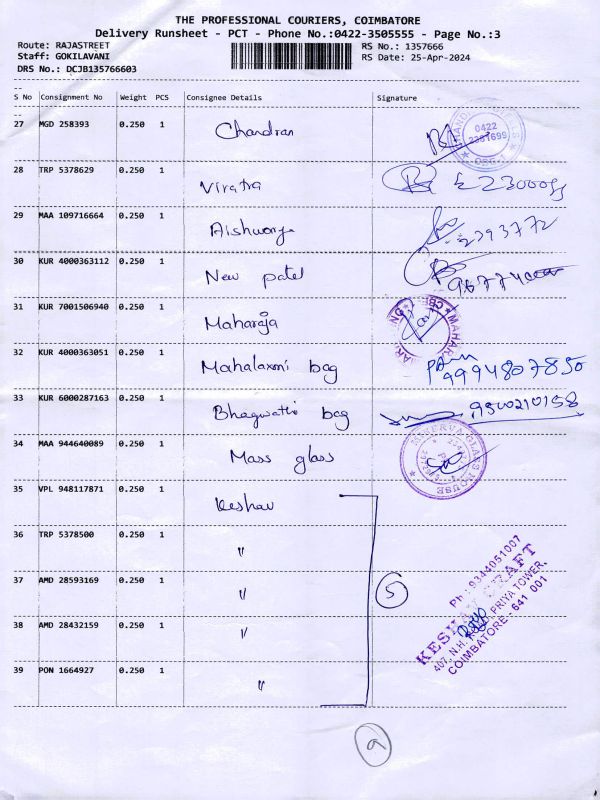 THE PROFESSIONAL COURIERS, COIMBATORE
Delivery Runsheet - PCT - Phone No.:0422-3505555 - Page No.:3
Route: RAJASTREET
RS No.: 1357666
Staff: GOKILAVANI
RS Date: 25-Apr-2024
DRS No.: DCJB135766603
S No Consignment No Weight PCS Consignee Details Signature
27 MGD 258393 0.250 1 Chandran
0422
2381699
28 TRP 5378629 0.250 1 Viratra
29 MAA 109716664 0.250 1 Aishwarya
2393772
30 KUR 4000363112 0.250 1 New patel
31 KUR 7001506940 0.250 1 Maharaja
32 KUR 4000363051 0.250 1 Mahalaxmi bag
9994807850
33 KUR 6000287163 0.250 1 Bhagwathi bag
9500210158
34 MAA 944640089 0.250 1 Mass glass
MINERVA GLASS HOUSE
35 VPL 948117871 0.250 1 Keshav
36 TRP 5378500 0.250 1 "
37 AMD 28593169 0.250 1 "
5
38 AMD 28432159 0.250 1 "
39 PON 1664927 0.250 1 "
Ph : 9344051007
KESHAV CRAFT
407, N.H. PRIYA TOWER,
COIMBATORE - 641 001
a